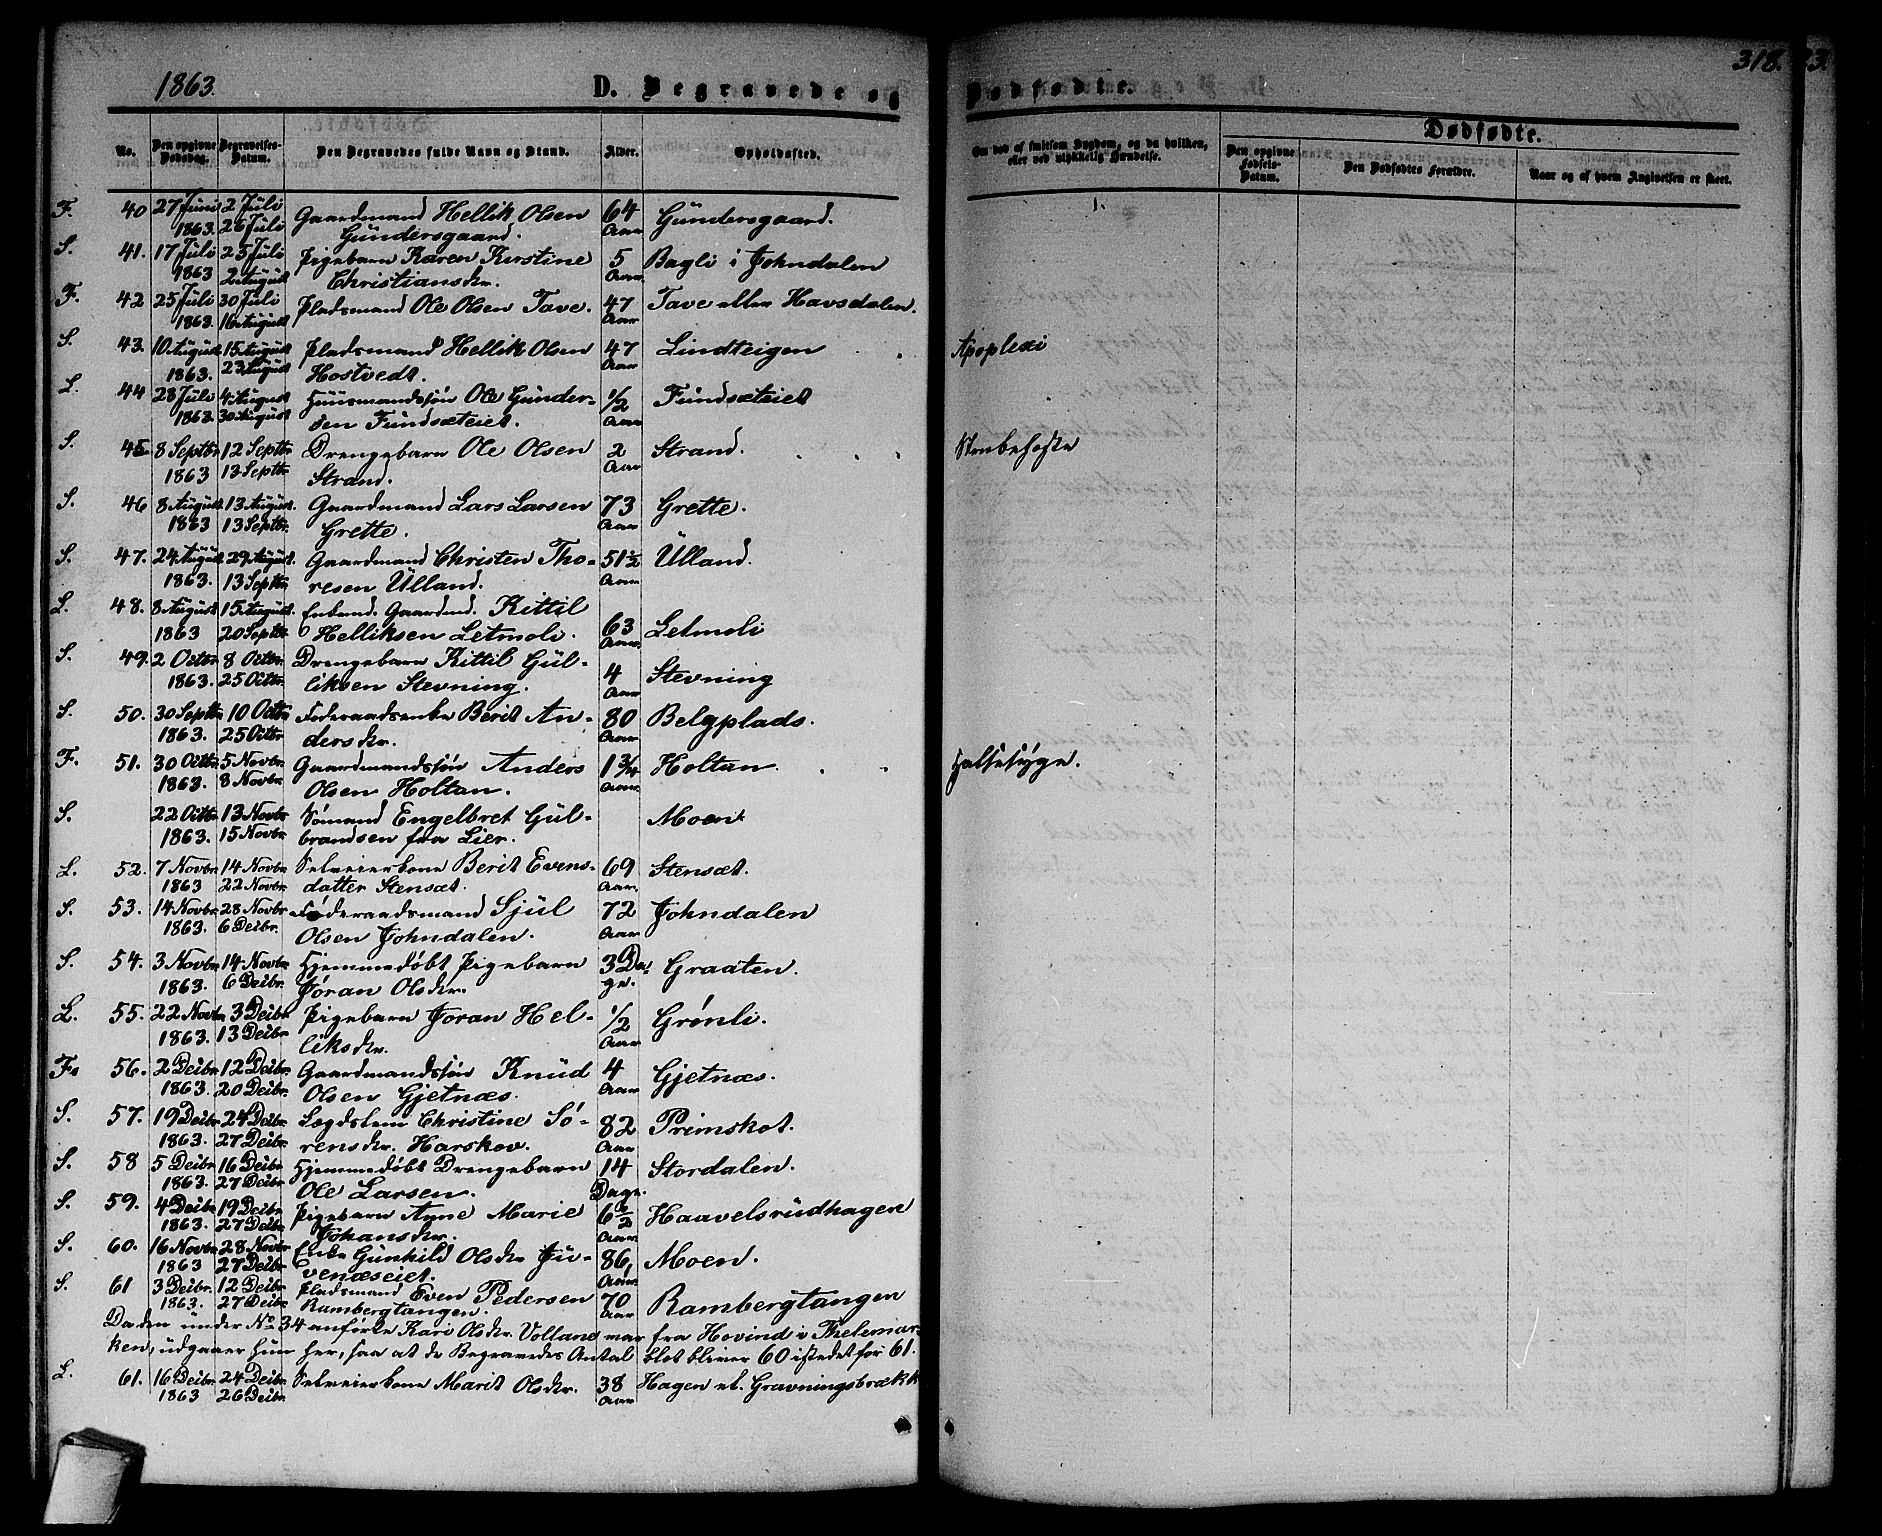 1863.
D. Begravede og
Dødfødte.
318.
No.
Den opgivne Dødsdag.
Begravelses-Datum.
Den Begravedes fulde Navn og Stand.
Alder.
Opholdssted.
Om død af smitsom Sygdom, og da hvilken, eller ved ulykkelig Hændelse.
Dødfødte.
Den opgivne Fødsels-Datum.
Den Dødfødtes Forældre.
Naar og af hvem Angivelsen er skeet.
F. 40 27 Juni 2 Juli Gaardmand Hellik Olsen 64 Gündersgaard.
1863. 26 Juli Gündersgaard. Aar
S. 41. 17 Juli 25 Juli Pigebarn Karen Kirstine 5 Bagli i Johndalen
1863 2 August Christiansdr. Aar
F. 42 25 Juli 30 Juli Pladsmand Ole Olsen Tave. 47 Tave eller Havsdalen.
1863. 16 August Aar
S. 43. 10 August 15 August Pladsmand Hellik Olsen 47 Lindteigen Apoplexi
1863. 23 August Hostvedt. Aar
L. 44 28 Juli 4 August Huusmandssøn Ole Günder- 1/2 Fundsæteiet
1863. 30 August sen Fundsæteiet. Aar
S. 45. 8 Septbr. 12 Septbr. Drengebarn Ole Olsen 2 Strand. Strubehoste
1863 13 Septbr. Strand. Aar
S. 46 8 August 13 August. Gaardmand Lars Larsen 73 Grette.
1863 13 Septbr. Grette. Aar
S. 47. 24 August 29 August. Gaardmand Christen Tho- 51 1/2 Ülland.
1863. 13 Septbr. resen Ülland. Aar
L. 48. 8 August 15 August. Enkemd. Gaardmd. Kittil
1863 20 Septbr. Helliksen Letmoli. 63 Aar. Letmoli
S. 49. 2 Octbr. 8 Octbr. Drengebarn Kittil Gül- 4 Stevning
1863. 25 Octbr. liksen Stevning. Aar
S. 50. 30 Septbr. 10 Octbr. Føderaadsenke Berit An- 80 Belgplads.
1863. 25 Octbr. dersdr. Aar
F. 51. 30 Octbr. 5 Novbr. Gaardmandssøn Anders 1 3/4 Holtan. Halssyge.
1863. 8 Novbr. Olsen Holtan. Aar
S. 22 Octbr. 13 Novbr. Sømand Engelbret Gül- Moen
1863. 15 Novbr. brandsen fra Lier.
L. 52. 7 Novbr. 14 Novbr. Selveierkone Berit Evens- 69 Stensæt.
1863 22 Novbr. datter Stensæt. Aar.
S. 53. 14 Novbr. 28 Novbr. Føderaadsmand Sjül 72 Johndalen
1863. 6 Decbr. Olsen Johndalen. Aar
S. 54. 3 Novbr. 14 Novbr. Hjemmedøbt Pigebarn 3 Da- Graaten.
1863. 6 Decbr. Jøran Olsdr. ge.
L. 55. 22 Novbr. 3 Decbr. Pigebarn Joran Hel- 1/2 Grønli.
1863. 13 Decbr. liksdr. Aar
F. 56. 2 Decbr. 12 Decbr. Gaardmandssøn Knüd 4 Gjetnæs.
1863. 20 Decbr. Olsen Gjetnæs. Aar
S. 57. 19 Decbr. 24 Decbr. Lægdslem Christine Sø- 82 Primskot.
1863. 27 Decbr. rensdr. Harskov. Aar
S. 58 5 Decbr. 16 Decbr. Hjemmedøbt Drengebarn 14 Stordalen.
1863. 27 Decbr. Ole Larsen. Dage.
S. 59. 4 Decbr. 19 Decbr. Pigebarn Anne Marie 6 1/2 Haavelsrüdhagen
1863. 27 Decbr. Johansdr. Aar.
S. 60. 16 Novbr. 28 Novbr. Enke Günhild Olsdr. Jü- 86 Moen.
1863 27 Decbr. venæseiet. Aar.
S. 61 3 Decbr. 12 Decbr. Pladsmand Even Pedersen 70 Rambergtangen
1863. 27 Decbr. Rambergtangen. Aar
Da den under No 34 anførte Kari Olsdr. Volland var fra Hovind i Thelemar-
ken, udgaaer hun her, saa at de Begravedes Antal blot bliver 60 istedet for 61.
L. 61. 16 Decbr. 24 Decbr. Selveierkone Marit Olsdr. 38 Hagen el. Gravningsbrækk
1863 26 Decbr. Aar